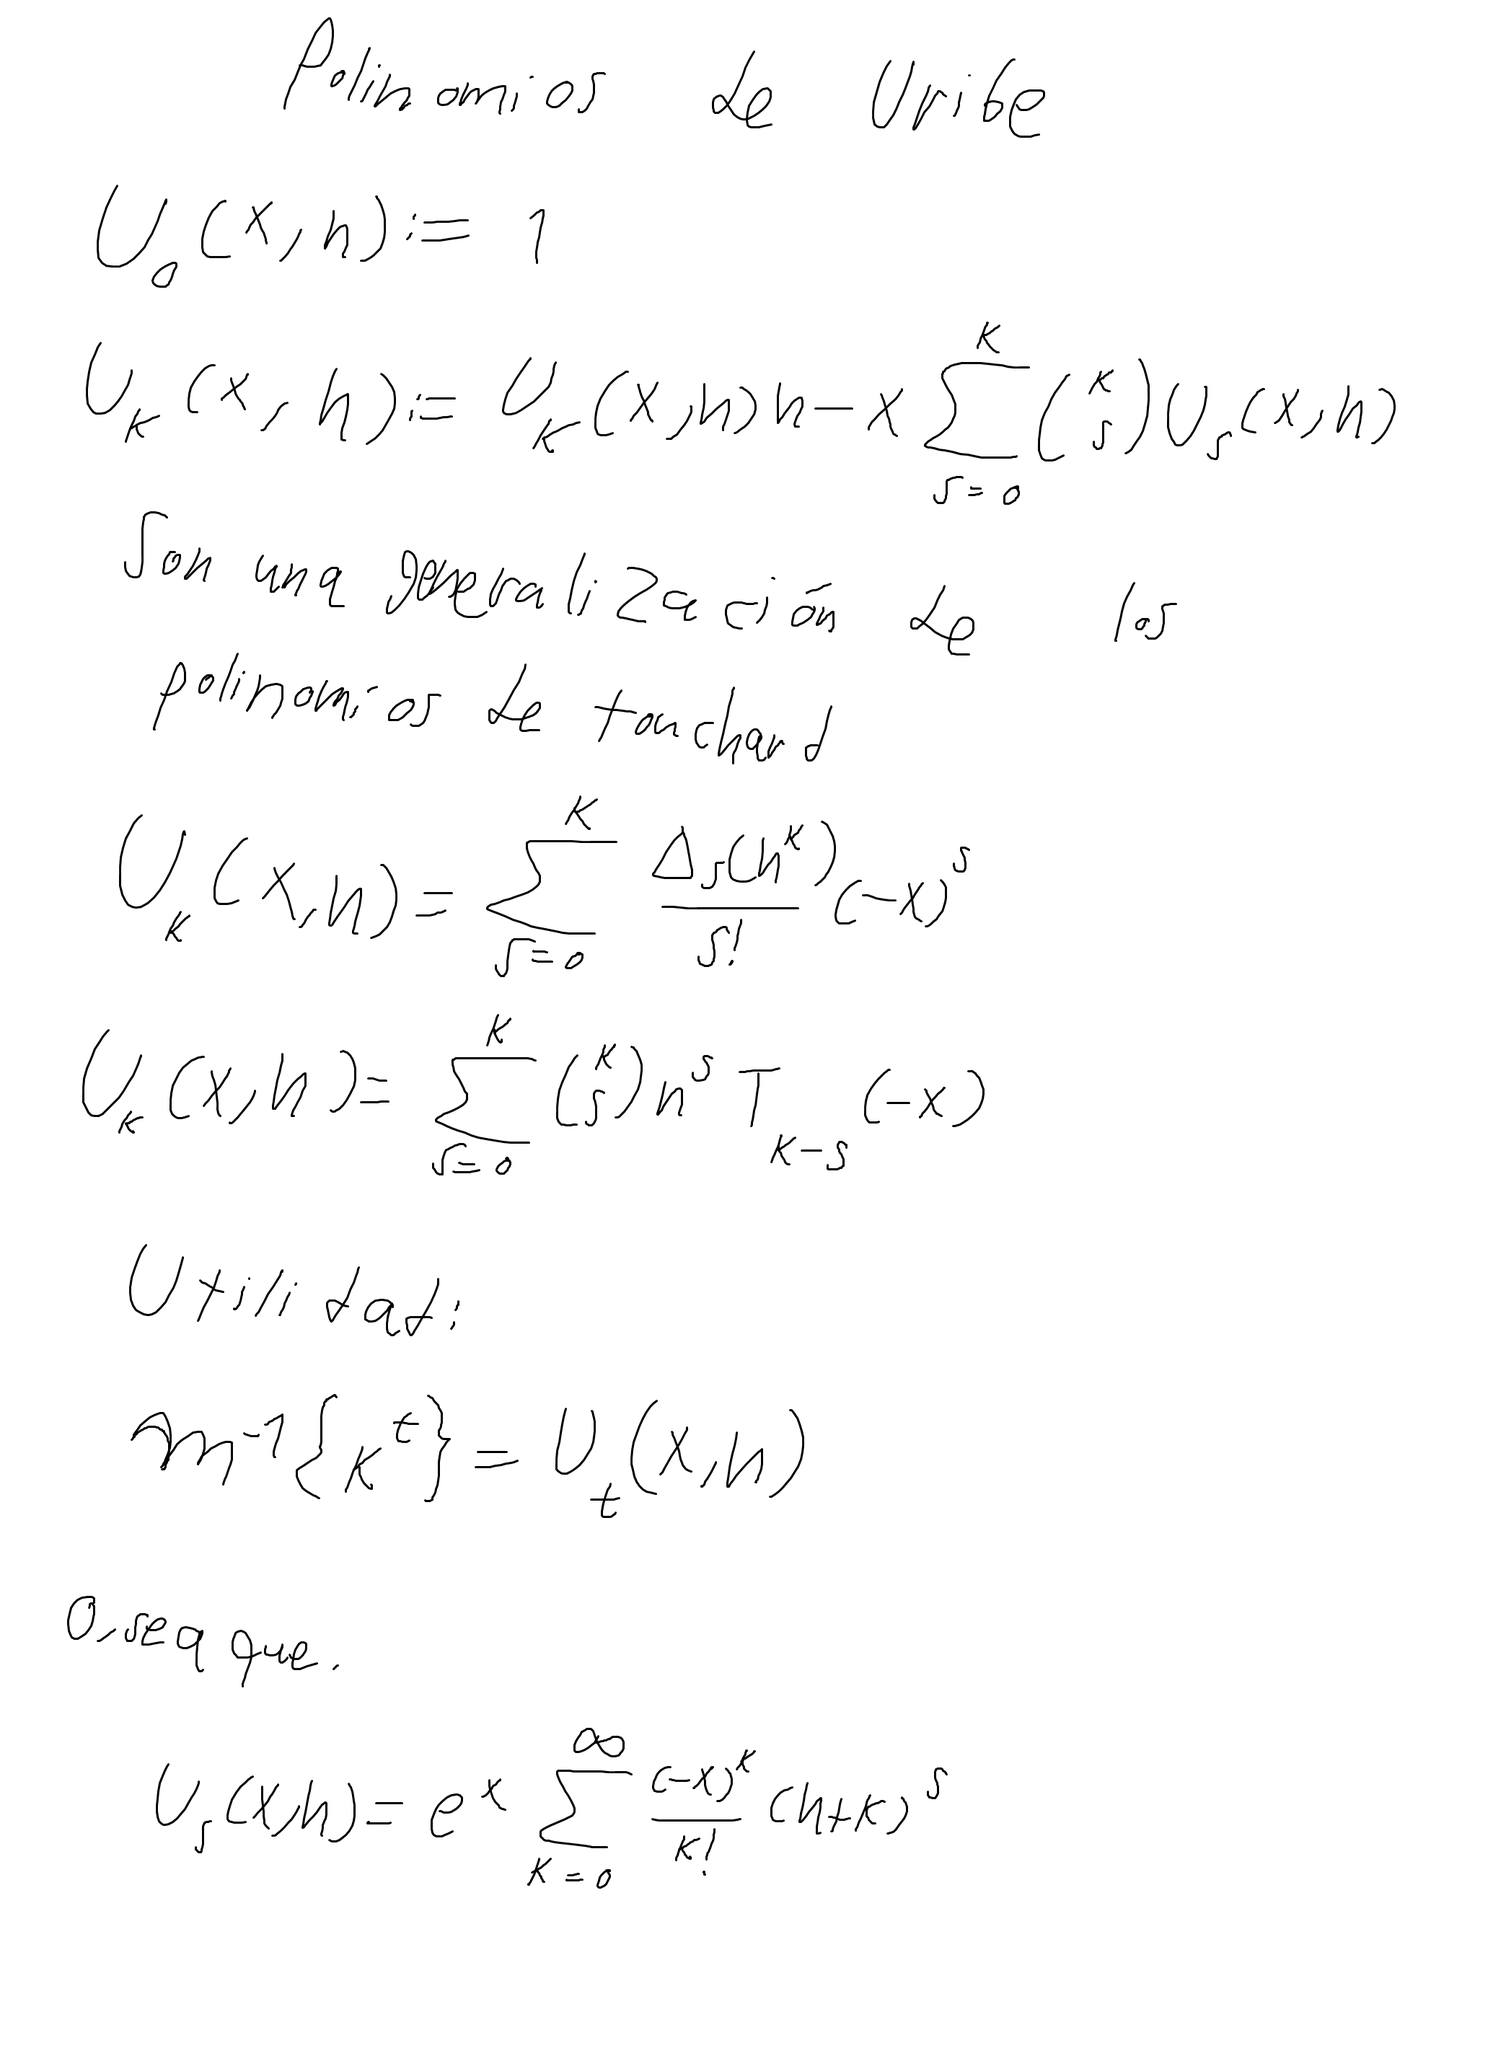 Polinomios de Uribe
U₀(x,n):= 1
U_K(x,n):= U_K(x,n)n-x∑_{s=0}^{K}(K s)U_s(x,n)
Son una generalización de los
polinomios de touchard
U_K(x,n)=∑_{s=0}^{K} Δ_s(n^K)/s! (-x)^s
U_K(x,n)=∑_{s=0}^{K}(K s)n^s T_{K-s}(-x)
Utilidad:
m⁻¹{K^t}=U_t(x,n)
O,sea que.
U_s(x,n)=e^x∑_{K=0}^{∞} (-x)^K/K! (n+K)^s